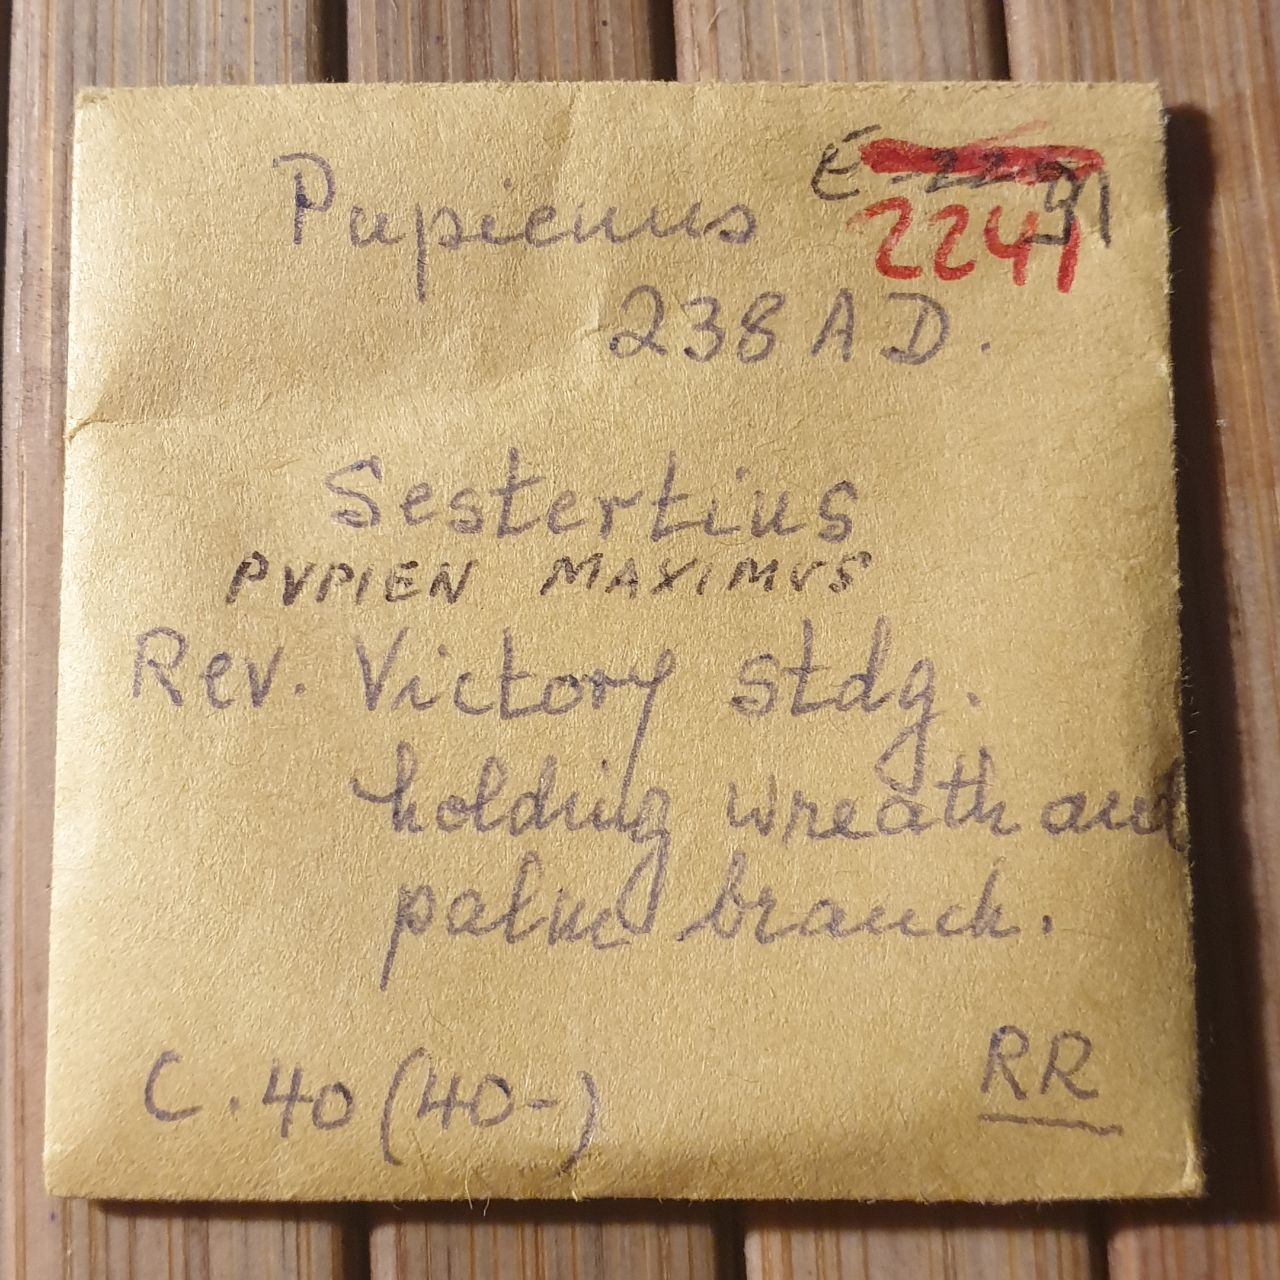 Pupienus
2241
238 A D.
Sestertius
PVPIEN MAXIMVS
Rev. Victory stdg.
holding wreath and
palm branch.
C. 40 (40-)
RR